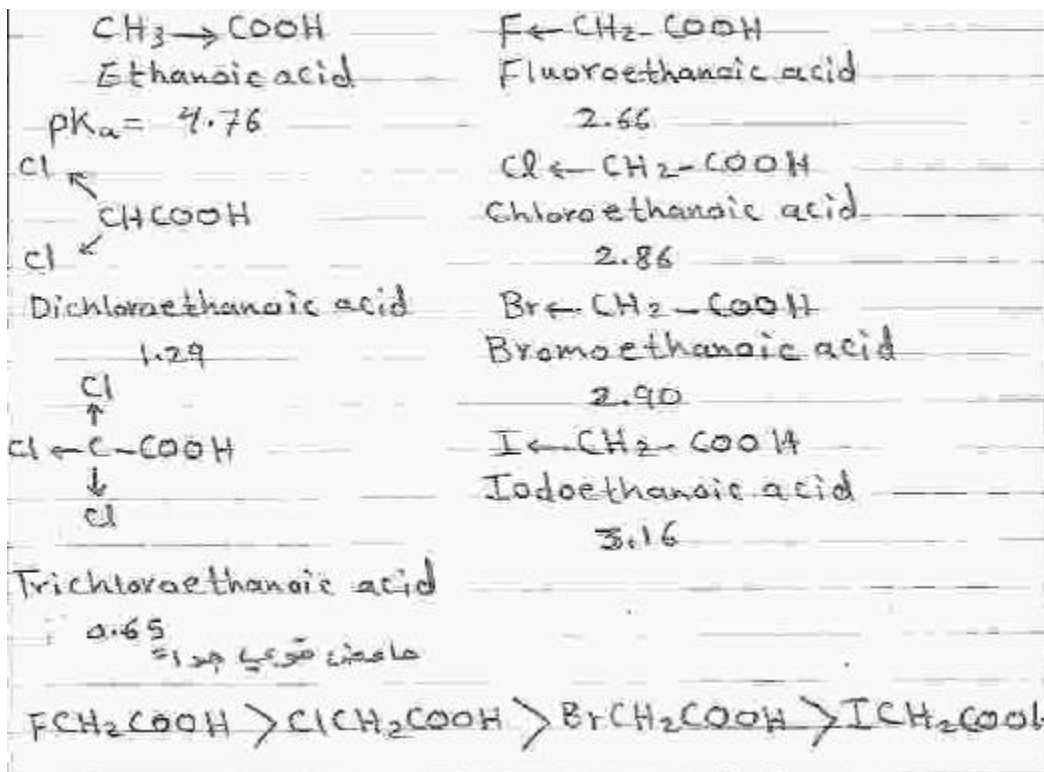 CH3→COOH
Ethanoic acid
pKa= 4.76
Cl
CHCOOH
Cl
Dichloroethanoic acid
1.29
Cl
↑
Cl←C-COOH
↓
Cl
Trichloroethanoic acid
0.65
حامض قوي جداً
F←CH2-COOH
Fluoroethanoic acid
2.66
Cl←CH2-COOH
Chloroethanoic acid
2.86
Br←CH2-COOH
Bromoethanoic acid
2.90
I←CH2-COOH
Iodoethanoic acid
3.16
FCH2COOH > ClCH2COOH > BrCH2COOH > ICH2COOH